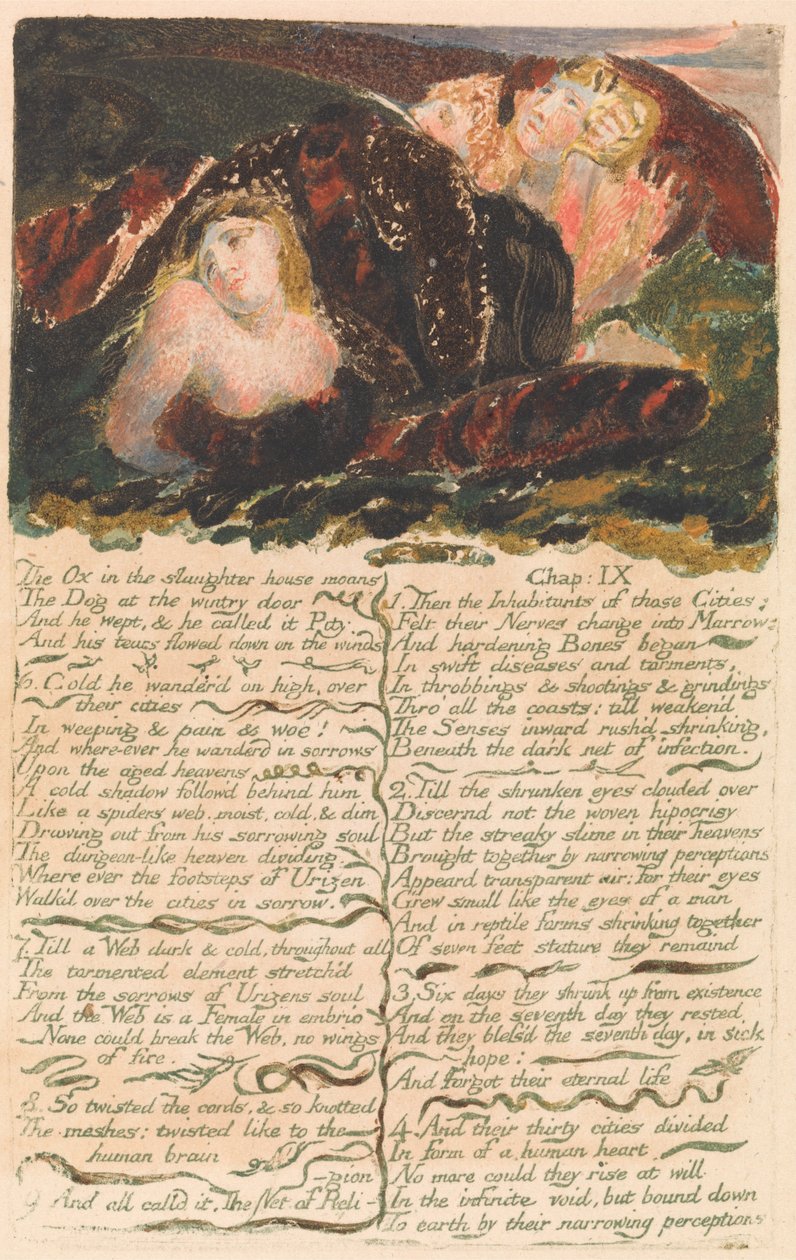 The Ox in the slaughter house moans
The Dog at the wintry door
And he wept, & he called it Pity
And his tears flowed down on the winds
6. Cold he wander'd on high, over
their cities
In weeping & pain & woe!
And where-ever he wanderd in sorrows
Upon the aged heavens
A cold shadow follow'd behind him
Like a spiders web, moist, cold, & dim
Drawing out from his sorrowing soul
The dungeon-like heaven dividing.
Where ever the footsteps of Urizen
Walk'd over the cities in sorrow.
7. Till a Web dark & cold, throughout all
The tormented element stretch'd
From the sorrows of Urizens soul
And the Web is a Female in embrio
None could break the Web, no wings
of fire.
8. So twisted the cords, & so knotted
The meshes: twisted like to the
human brain
-gion
9. And all calld it, The Net of Reli-
Chap: IX
1. Then the Inhabitants of those Cities:
Felt their Nerves change into Marrow
And hardening Bones began
In swift diseases and torments,
In throbbings & shootings & grindings
Thro' all the coasts; till weakend
The Senses inward rush'd shrinking,
Beneath the dark net of infection.
2. Till the shrunken eyes clouded over
Discernd not the woven hipocrisy
But the streaky slime in their heavens
Brought together by narrowing perceptions
Appeard transparent air; for their eyes
Grew small like the eyes of a man
And in reptile forms shrinking together
Of seven feet stature they remaind
3. Six days they shrunk up from existence
And on the seventh day they rested
And they bless'd the seventh day, in sick
hope:
And forgot their eternal life
4. And their thirty cities divided
In form of a human heart
No more could they rise at will
In the infinite void, but bound down
To earth by their narrowing perceptions